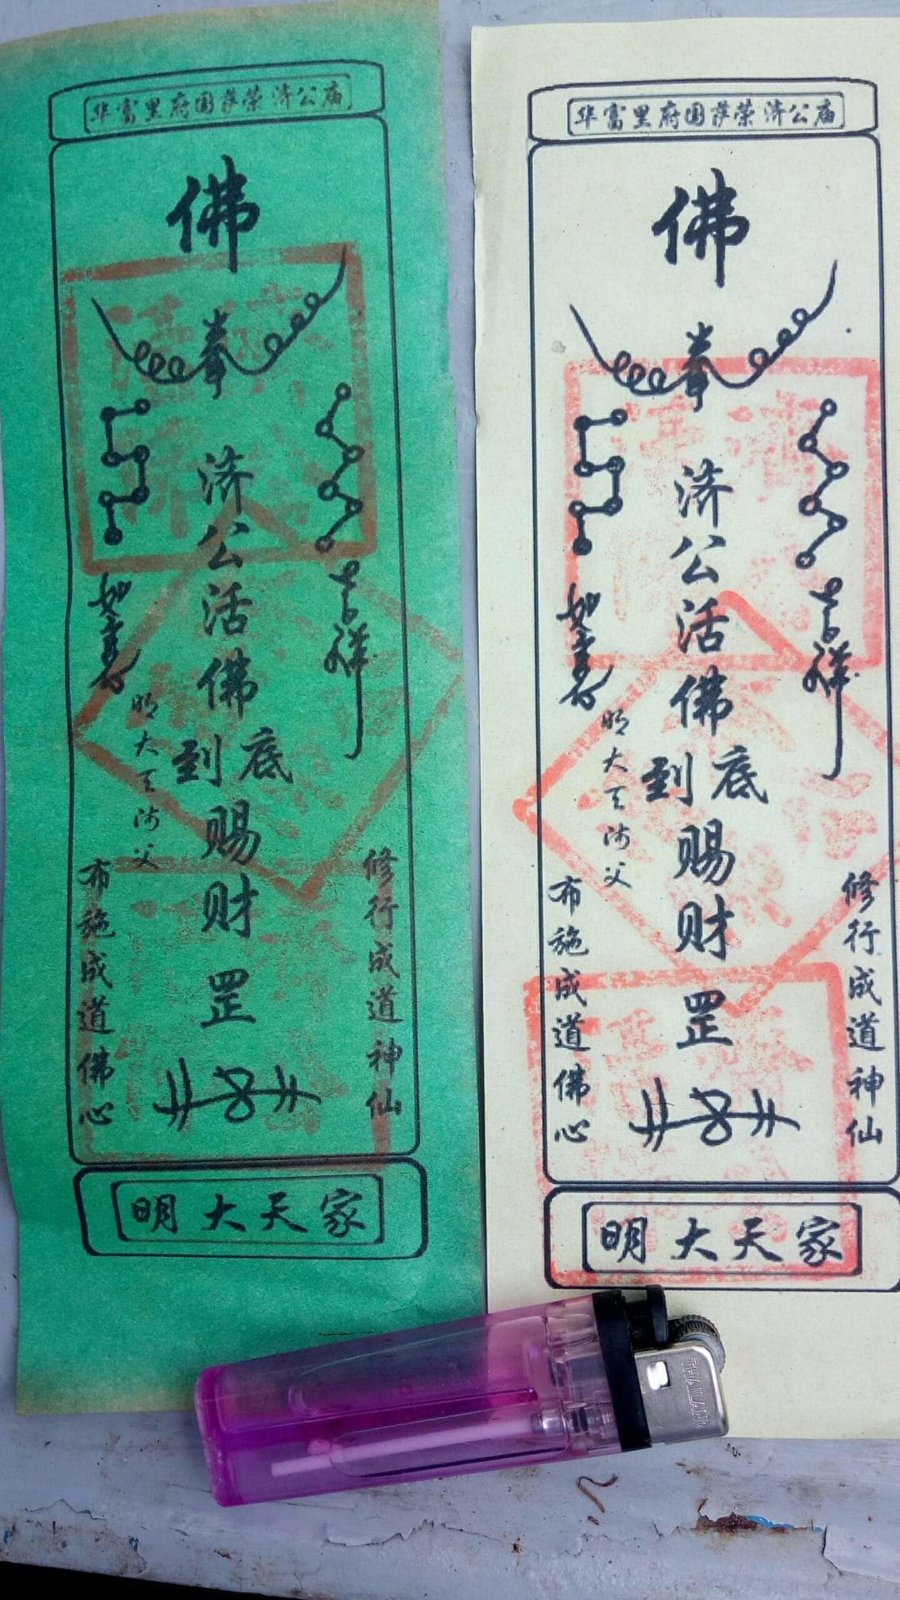 华富里府国萨荣济公庙
佛
拳
济公活佛
到底
赐财
罡
如意
吉祥
明大天师父
布施成道佛心
修行成道神仙
明大天家
华富里府国萨荣济公庙
佛
拳
济公活佛
到底
赐财
罡
如意
吉祥
明大天师父
布施成道佛心
修行成道神仙
明大天家
THAILAND